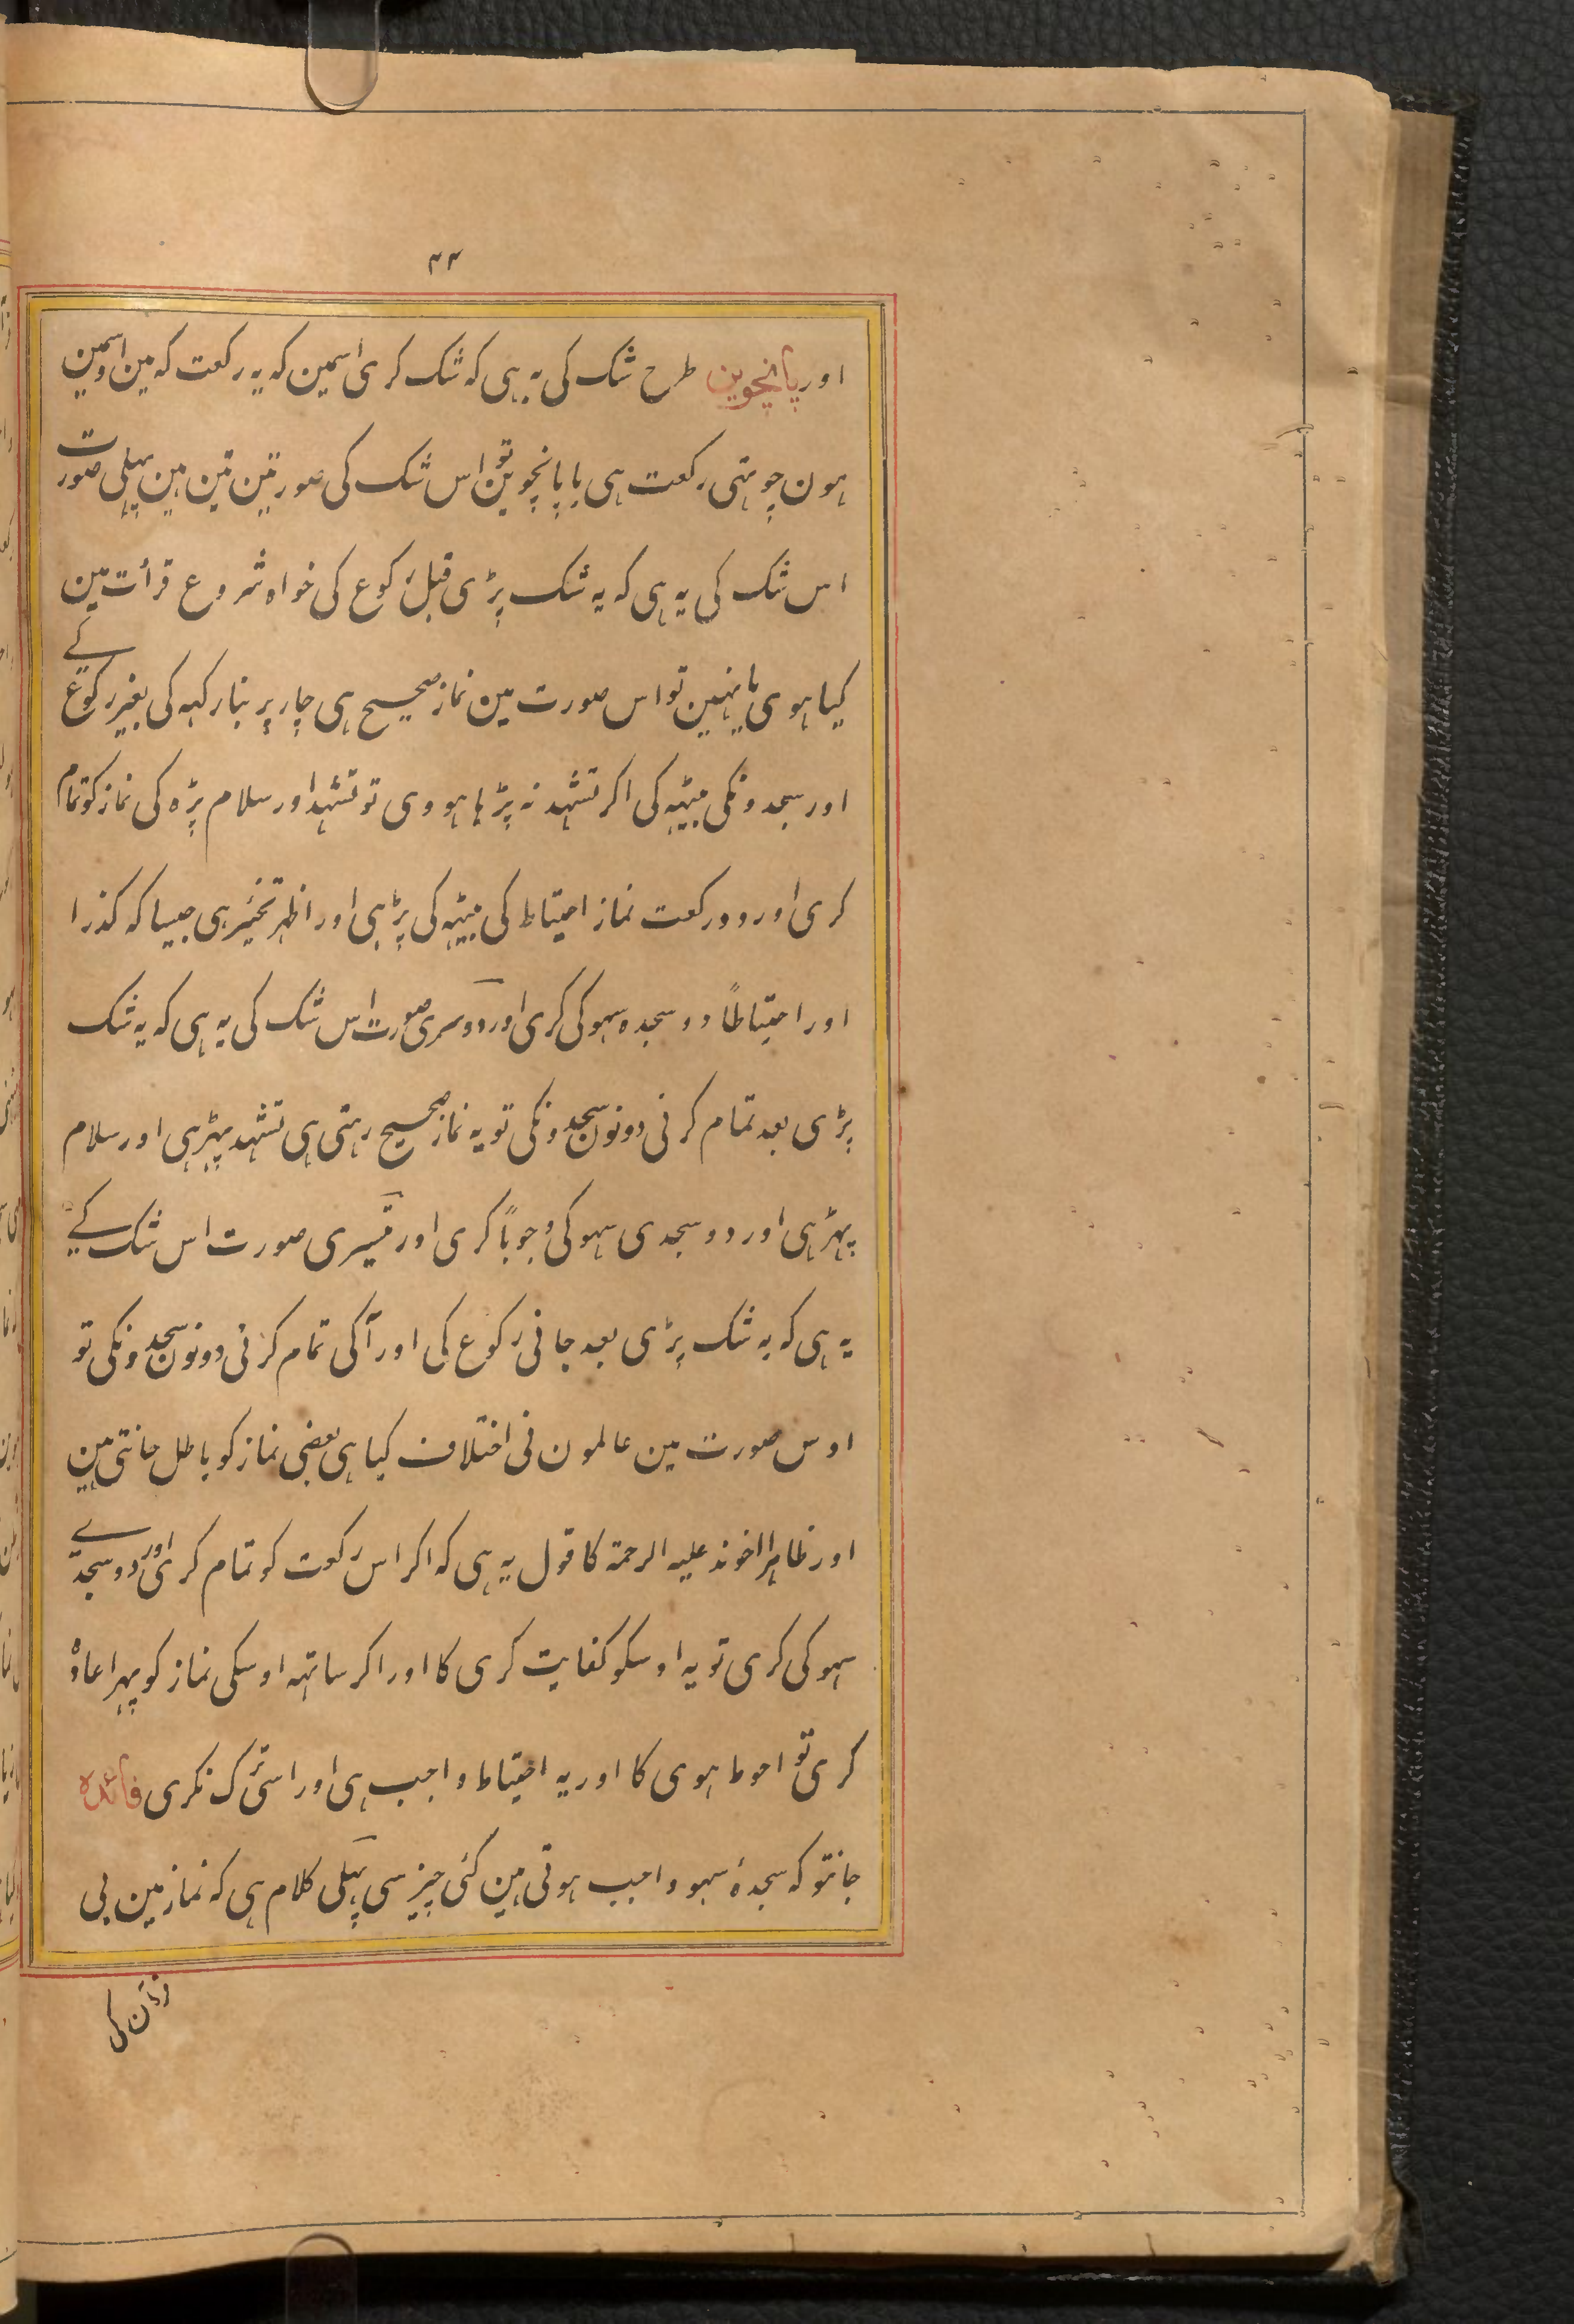 ۴۴
اور پانچوین طرح شک کی یہ ہی کہ شک کری اسمین کہ یہ رکعت کہ مین اسمین
ہون چوتہی رکعت ہی یا پانچوین تو اس شک کی صورتین تین ہین پہلی صورت
اس شک کی یہ ہی کہ یہ شک پڑی قبل رکوع کی خواہ شروع قرأت مین
کیا ہوی یا نہین تو اس صورت مین نماز صحیح ہی چار پر بنا رکہہ کی بغیر رکوع کے
اور سجدونکی بیٹہہ کی اکر تشہد نہ پڑہا ہووی تو تشہد اور سلام پڑہ کی نماز کو تمام
کری اور دو رکعت نماز احتیاط کی بیٹہہ کی پڑہی اور اظہر تخییر ہی جیسا کہ کذرا
اور احتیاطاً دو سجدہ سہو کی کری اور دوسری صورت اس شک کی یہ ہی کہ یہ شک
پڑی بعد تمام کرنی دونون سجدونکی تو یہ نماز صحیح رہتی ہی تشہد پہڑہی اور سلام
پہڑہی اور دو سجدی سہو کی وجوباً کری اور تیسری صورت اس شک کے
یہ ہی کہ یہ شک پڑی بعد جانی رکوع کی اور آکی تمام کرنی دونون سجدونکی تو
اوس صورت مین عالمون نی اختلاف کیا ہی بعضی نماز کو باطل جانتی ہین
اور ظاہرا اخوند علیہ الرحمۃ کا قول یہ ہی کہ اکر اس رکعت کو تمام کری اور دو سجدے
سہو کی کری تو یہ اوسکو کفایت کری کا اور اکر ساتہہ اوسکی نماز کو پہر اعادہ
کری تو احوط ہوی کا اور یہ احتیاط واجب ہی اور اسی ترک نکری فائدہ
جانتو کہ سجدۂ سہو واجب ہوتی ہین کئی چیز سی پہلی کلام ہی کہ نماز مین بی
قرآن کی